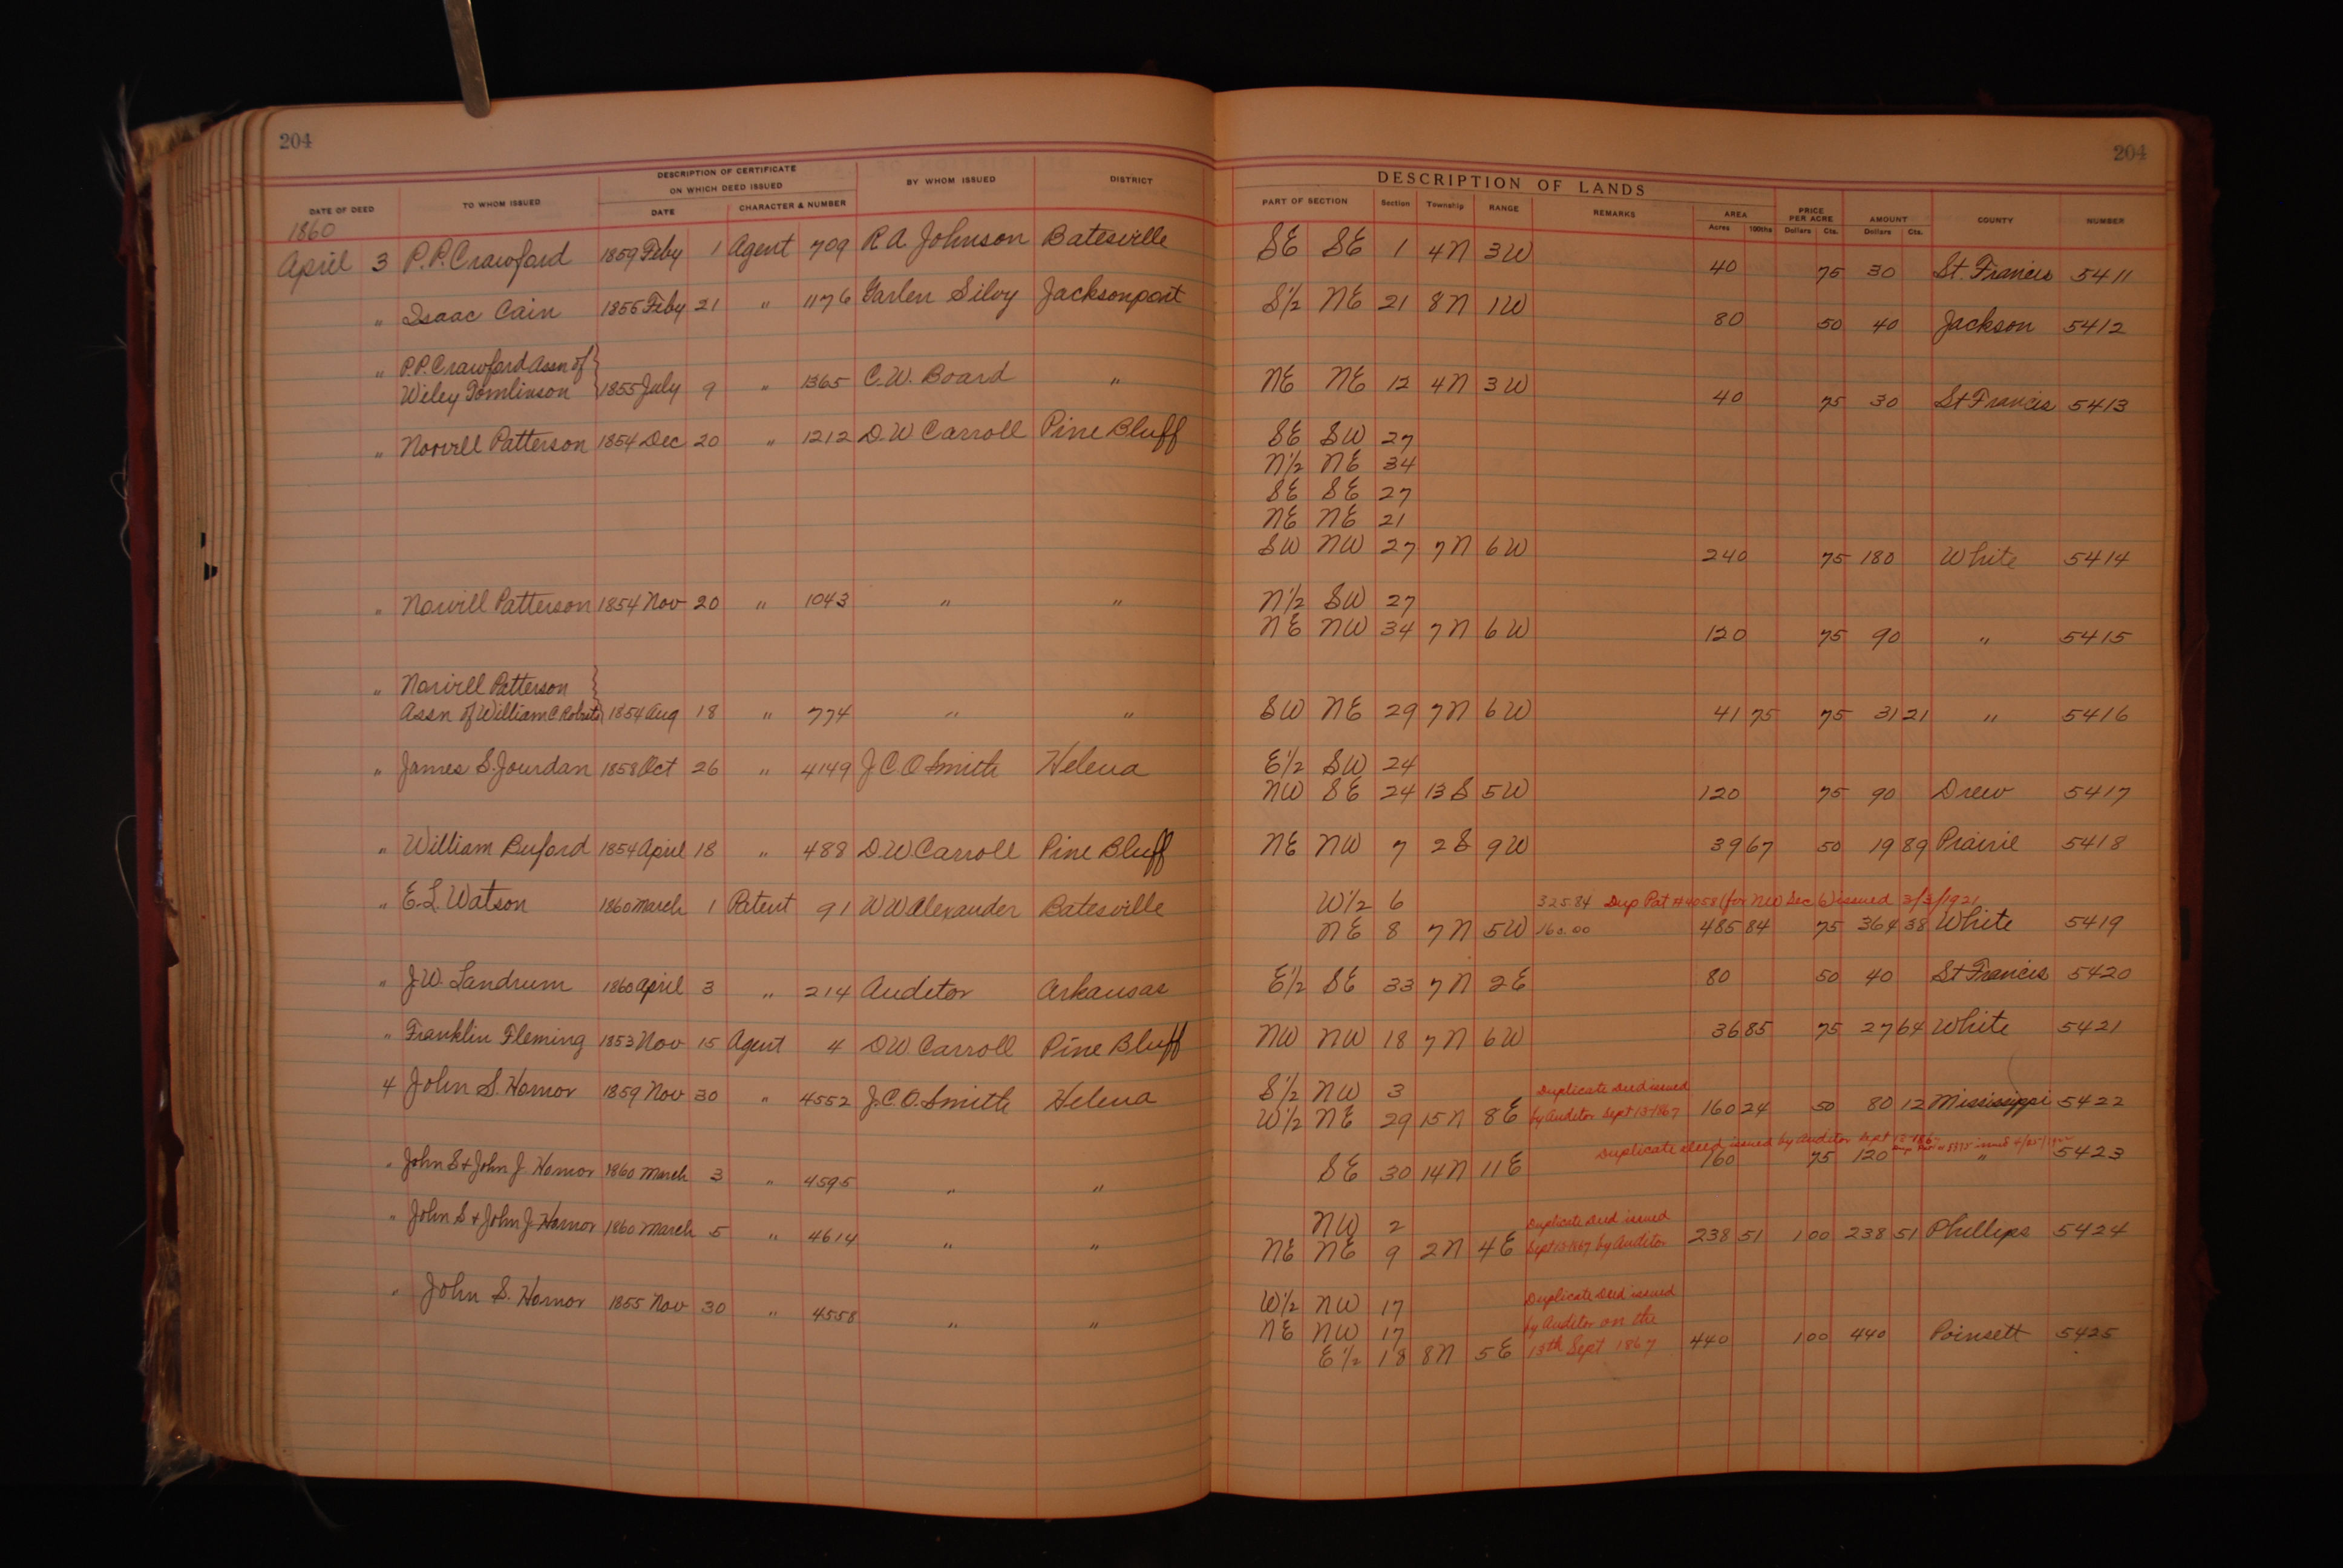 204
204
DESCRIPTION OF CERTIFICATE
ON WHICH DEED ISSUED
DATE OF DEED TO WHOM ISSUED DATE CHARACTER & NUMBER BY WHOM ISSUED DISTRICT
DESCRIPTION OF LANDS
PART OF SECTION Section Township RANGE REMARKS AREA Acres 100ths PRICE PER ACRE Dollars Cts. AMOUNT Dollars Cts. COUNTY NUMBER
1860
April 3 P.P. Crawford 1859 Feby 1 Agent 709 R A Johnson Batesville SE SE 1 4N 3W 40 75 30 St. Francis 5411
" Isaac Cain 1855 Feby 21 " 1176 Garlen Silvy Jacksonport S½ NE 21 8N 1W 80 50 40 Jackson 5412
" P.P. Crawford Assn of
Wiley Tomlinson 1855 July 9 " 1365 C.W. Board " NE NE 12 4N 3W 40 75 30 St Francis 5413
" Norvill Patterson 1854 Dec 20 " 1212 D.W Carroll Pine Bluff SE SW 27
N½ NE 34
SE SE 27
NE NE 21
SW NW 27 7N 6W 240 75 180 White 5414
" Norvill Patterson 1854 Nov 20 " 1043 " " N½ SW 27
NE NW 34 7N 6W 120 75 90 " 5415
" Norvill Patterson
Assn of William C Roberts 1854 Aug 18 " 774 " " SW NE 29 7N 6W 41 75 75 31 21 " 5416
" James S. Jourdan 1858 Oct 26 " 4149 J.C.O Smith Helena E½ SW 24
NW SE 24 13S 5W 120 75 90 Drew 5417
" William Buford 1854 April 18 " 488 D.W Carroll Pine Bluff NE NW 7 2S 9W 39 67 50 19 89 Prairie 5418
" E.L. Watson 1860 March 1 Patent 91 W W Alexander Batesville W½ 6 325.84 Dup Pat #4058 (for NW Sec 6) issued 3/3/1921
NE 8 7N 5W 160.00 485 84 75 364 38 White 5419
" J.W. Landrum 1860 April 3 " 214 Auditor Arkansas E½ SE 33 7N 2E 80 50 40 St Francis 5420
" Franklin Fleming 1853 Nov 15 Agent 4 D.W Carroll Pine Bluff NW NW 18 7N 6W 36 85 75 27 64 White 5421
4 John S. Hornor 1859 Nov 30 " 4552 J.C.O. Smith Helena S½ NW 3 Duplicate Deed issued
W½ NE 29 15N 8E by Auditor Sept 13-1867 160 24 50 80 12 Mississippi 5422
Duplicate deed issued by Auditor Sept
" John S & John J. Hornor 1860 March 3 " 4595 " " SE 30 14N 11E 160 75 120 " 5423
" John S & John J. Hornor 1860 March 5 " 4614 " " NW 2 Duplicate Deed issued
NE NE 9 2N 4E Sept 13-1867 by Auditor 238 51 1 00 238 51 Phillips 5424
" John S. Hornor 1855 Nov 30 " 4558 " " W½ NW 17 Duplicate Deed issued
NE NW 17 by Auditor on the
E½ 18 8N 5E 13th Sept 1867 440 1 00 440 Poinsett 5425